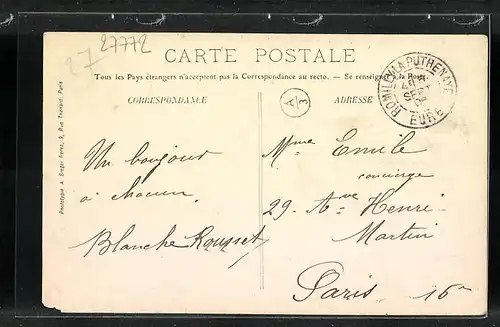 27772
27
CARTE POSTALE
Tous les Pays étrangers n'acceptent pas la Correspondance au recto. — Se renseigner à la Poste
CORRESPONDANCE
A
3
ADRESSE
ROMILLY-LA-PUTHENAYE
EURE
Un bonjour
à chacun.
Blanche Rousset
Mme Emile
concierge
29. Ave Henri-
Martin
Paris 16e
Phototypie A. Breger Frères, 9, Rue Thénard, Paris